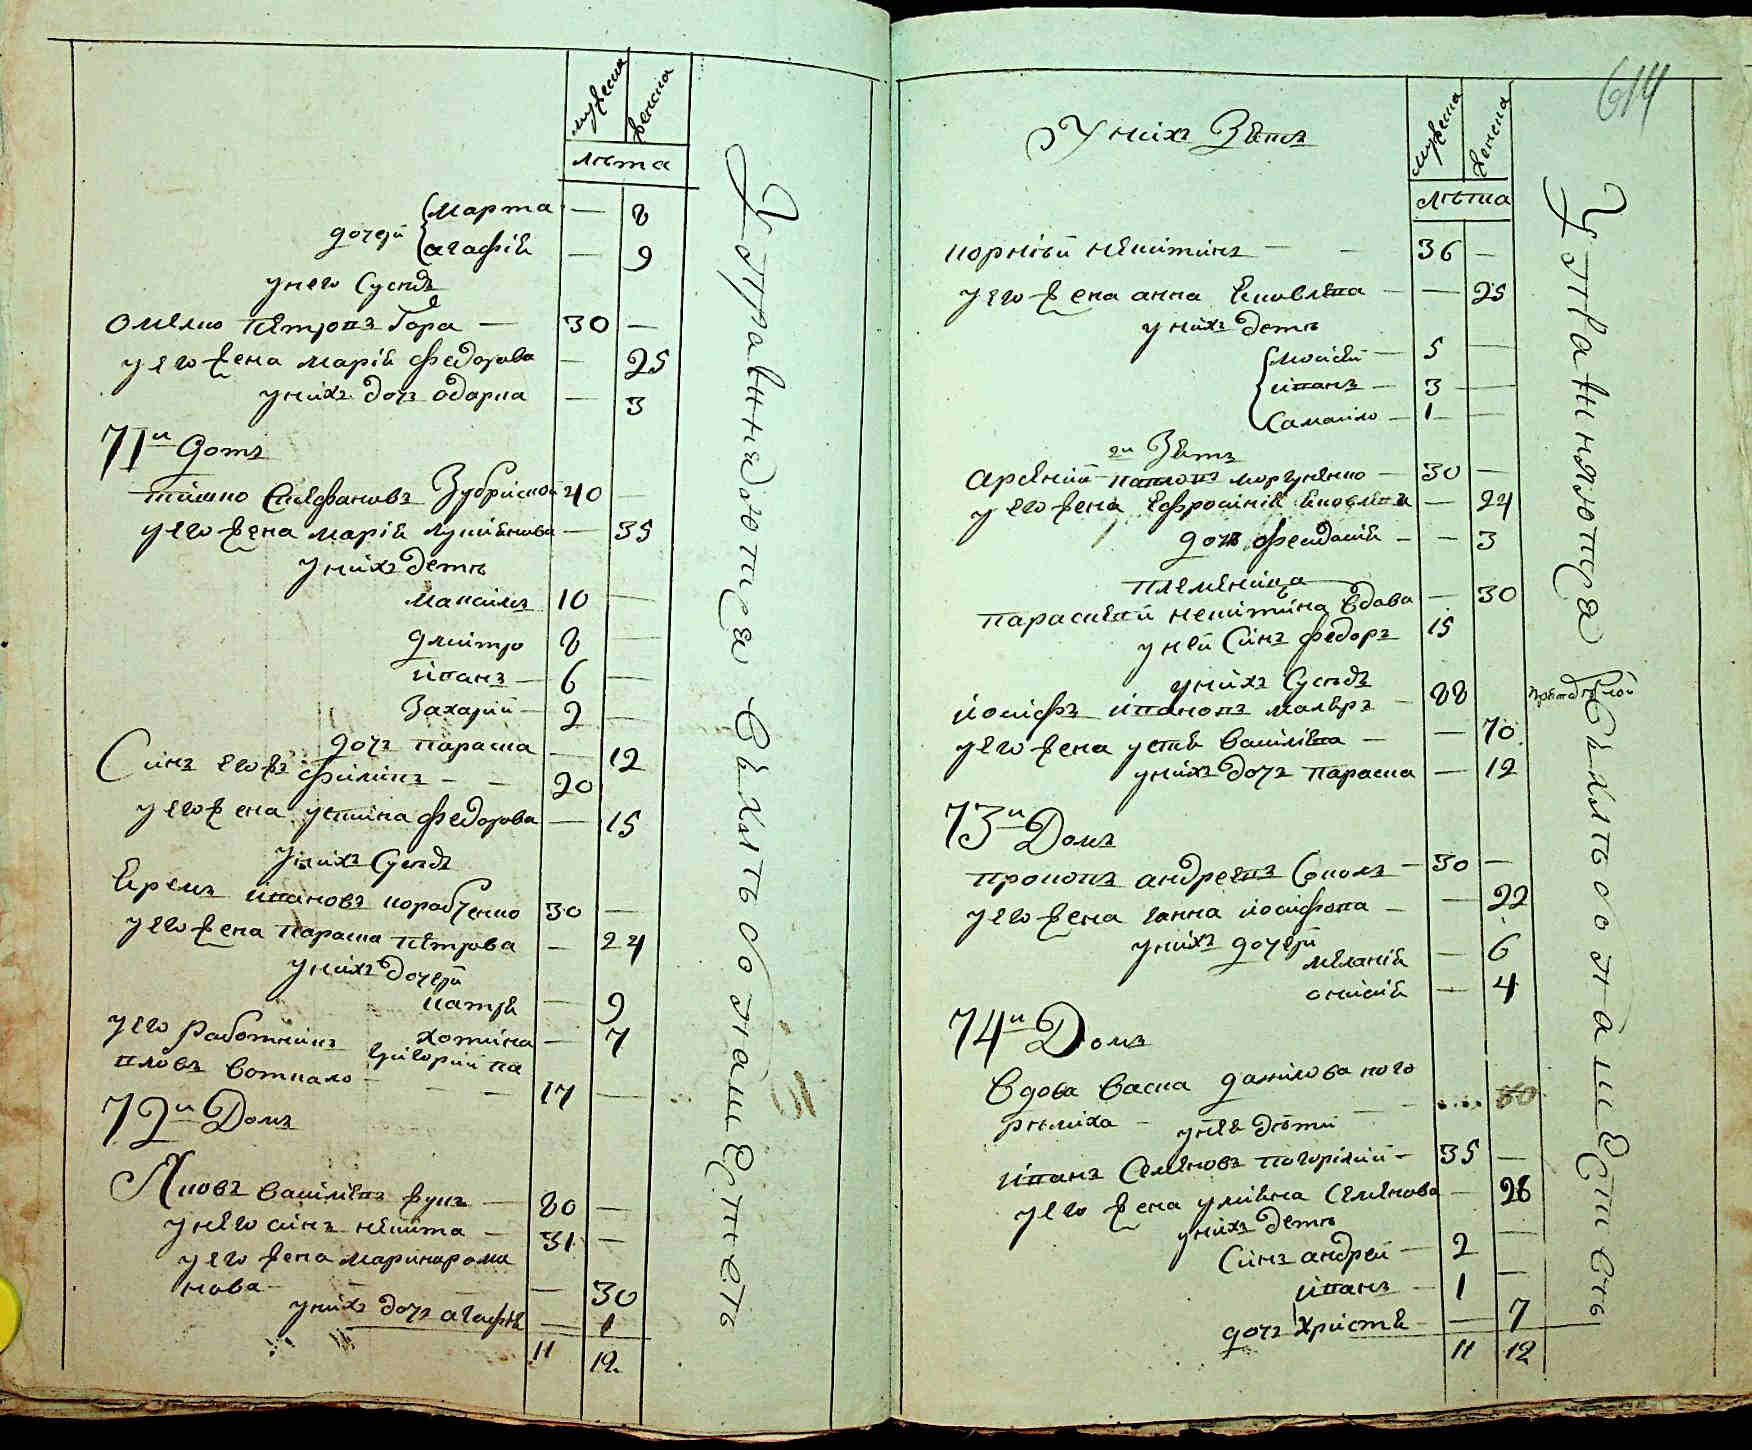 мужеска
женска
лѣта
дочери
марта — 8
агафія — 9
у него сусѣдъ
омелко петровъ Гора — 30 —
у его жена марія федорова — 25
у нихъ дочъ одарка — 3
71й домъ
тишко Стефановъ Зубрискои 40 —
у его жена марія лукіянова — 35
у нихъ детѣ
максимъ 10 —
дмитро 8 —
иванъ — 6 —
Захарий — 2 —
дочъ параска — 12
Синъ егожъ филипъ — — 20
у его жена устина федорова — 15
у нихъ сусѣдъ
Ерема ивановъ корабченко 30 —
у его жена параска петрова — 24
у нихъ дочери
катря — 9
хотина — 7
у его работникъ григорий па
вловъ воткало — — — 17 —
72й Домъ
Яковъ василіевъ жукъ — 80 —
у него синъ никита — 31 —
у его жена марина рома
нова — — 30
у нихъ дочъ агафія — 1
11 12
Управнияются Сехлѣбопашествѣ
614
У нихъ Зять
мужеска
женска
лѣта
корній никитинъ — — 36 —
у его жена анна яковлева — — 25
у нихъ детѣ
моисей — 5 —
иванъ — 3 —
самойло — 1 —
2й Зять
арсений павловъ моргуненко — 30 —
у его жена ефросинія яковлева — 24
дочъ феодосія — — 3
племеница
параскевия никитина вдова — 30
у ней синъ федоръ 15
у нихъ сусѣдъ
иосифъ ивановъ маляръ — 88
престарѣлой
у его жена устя василіева — — 70
у нихъ дочъ параска — 12
73й Домъ
прокопъ андреевъ Соколъ — 30 —
у его жена ганна иосифова — — 22
у нихъ дочери
меланія — 6
онисія — 4
74й Домъ
вдова васка данилова пого
рѣлиха — — — 80
у нея дѣти
иванъ Семеновъ погорілий — 35 —
у его жена уляна семенова — 28
у нихъ детѣ
синъ андрей — 2 —
иванъ — 1 —
дочъ христя — 7
11 12